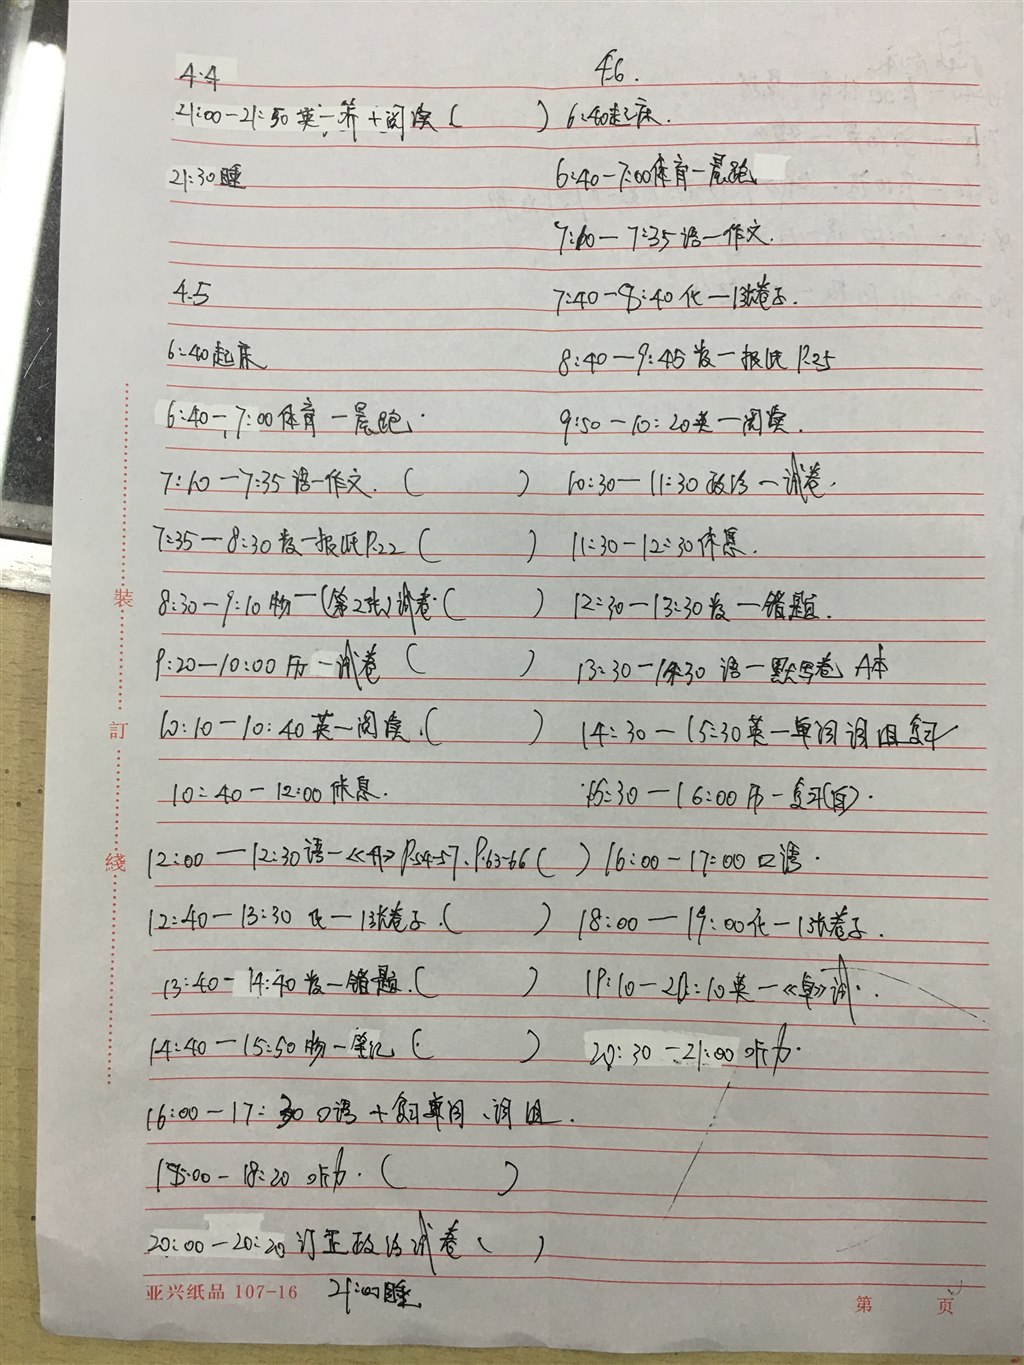 4.4
21:00-21:30 英一 + 阅读 (        )
21:30 睡
4.5
6:40起床
6:40-7:00体育一晨跑.
7:10-7:35 语一作文. (        )
7:35-8:30 数一报纸P.22 (        )
8:30-9:10 物一(第2张)试卷.(        )
9:20-10:00 历一试卷 (        )
10:10-10:40英一阅读.(        )
10:40-12:00 休息.
12:00-12:30语一 P.54-57、P.63-66 (    )
12:40-13:30 化一1张卷子.(        )
13:40-14:40 数一错题.(        )
14:40-15:50 物一笔记 (        )
16:00-17:30 口语+复习单词、词组.
18:00-18:20 听力.(        )
20:00-20:20 订正政治试卷 (    )
21:00睡
4.6.
6:40起床.
6:40-7:00体育一晨跑
7:10-7:35 语一作文.
7:40-8:40 化一1张卷子.
8:40-9:45 数一报纸 P.25
9:50-10:20英一阅读.
10:30-11:30 政治一试卷.
11:30-12:30休息.
12:30-13:30数一错题.
13:30-14:30 语一默写卷 A本
14:30-15:30英一单词词组复习
15:30-16:00 历一复习(自).
16:00-17:00 口语.
18:00-19:00化一1张卷子.
19:10-20:10英一 试.
20:30-21:00 听力.
裝
訂
綫
亚兴纸品 107-16
第 页